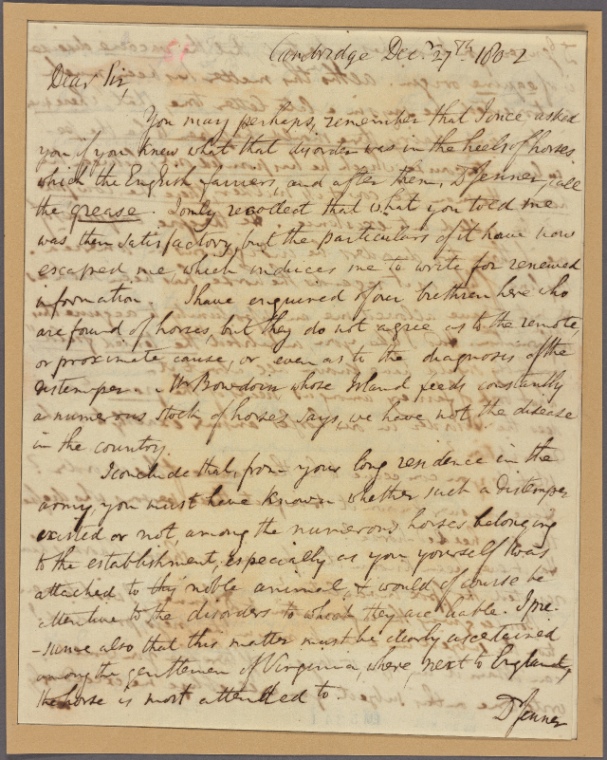 Cambridge Decr. 27th. 1802
Dear Sir,
You may perhaps, remember that I once asked
you if you knew what that disorder was in the heels of horses
which the English farriers, and after them, Dr Jenner, call
the grease. I only recollect that what you told me
was then satisfactory, but the particulars of it have now
escaped me, which induces me to write for renewed
information. I have enquired of our brethren here who
are found of horses, but they do not agree as to the remote,
or proximate cause, or even as to the diagnosis of the
distemper. Mr Bowdoin whose Island feeds constantly
a numerous stock of horses says, we have not the disease
in the country.
I conclude that, from your long residence in the
army, you must have known whether such a distemper
existed or not, among the numerous horses belonging
to the establishment, especially as you yourself was
attached to this noble animal, & would of course be
attentive to the disorders to which they are liable. I pre-
-sume also that this matter must be clearly ascertained
among the gentlemen of Virginia, where, next to England,
the horse is most attended to
Dr Jenner